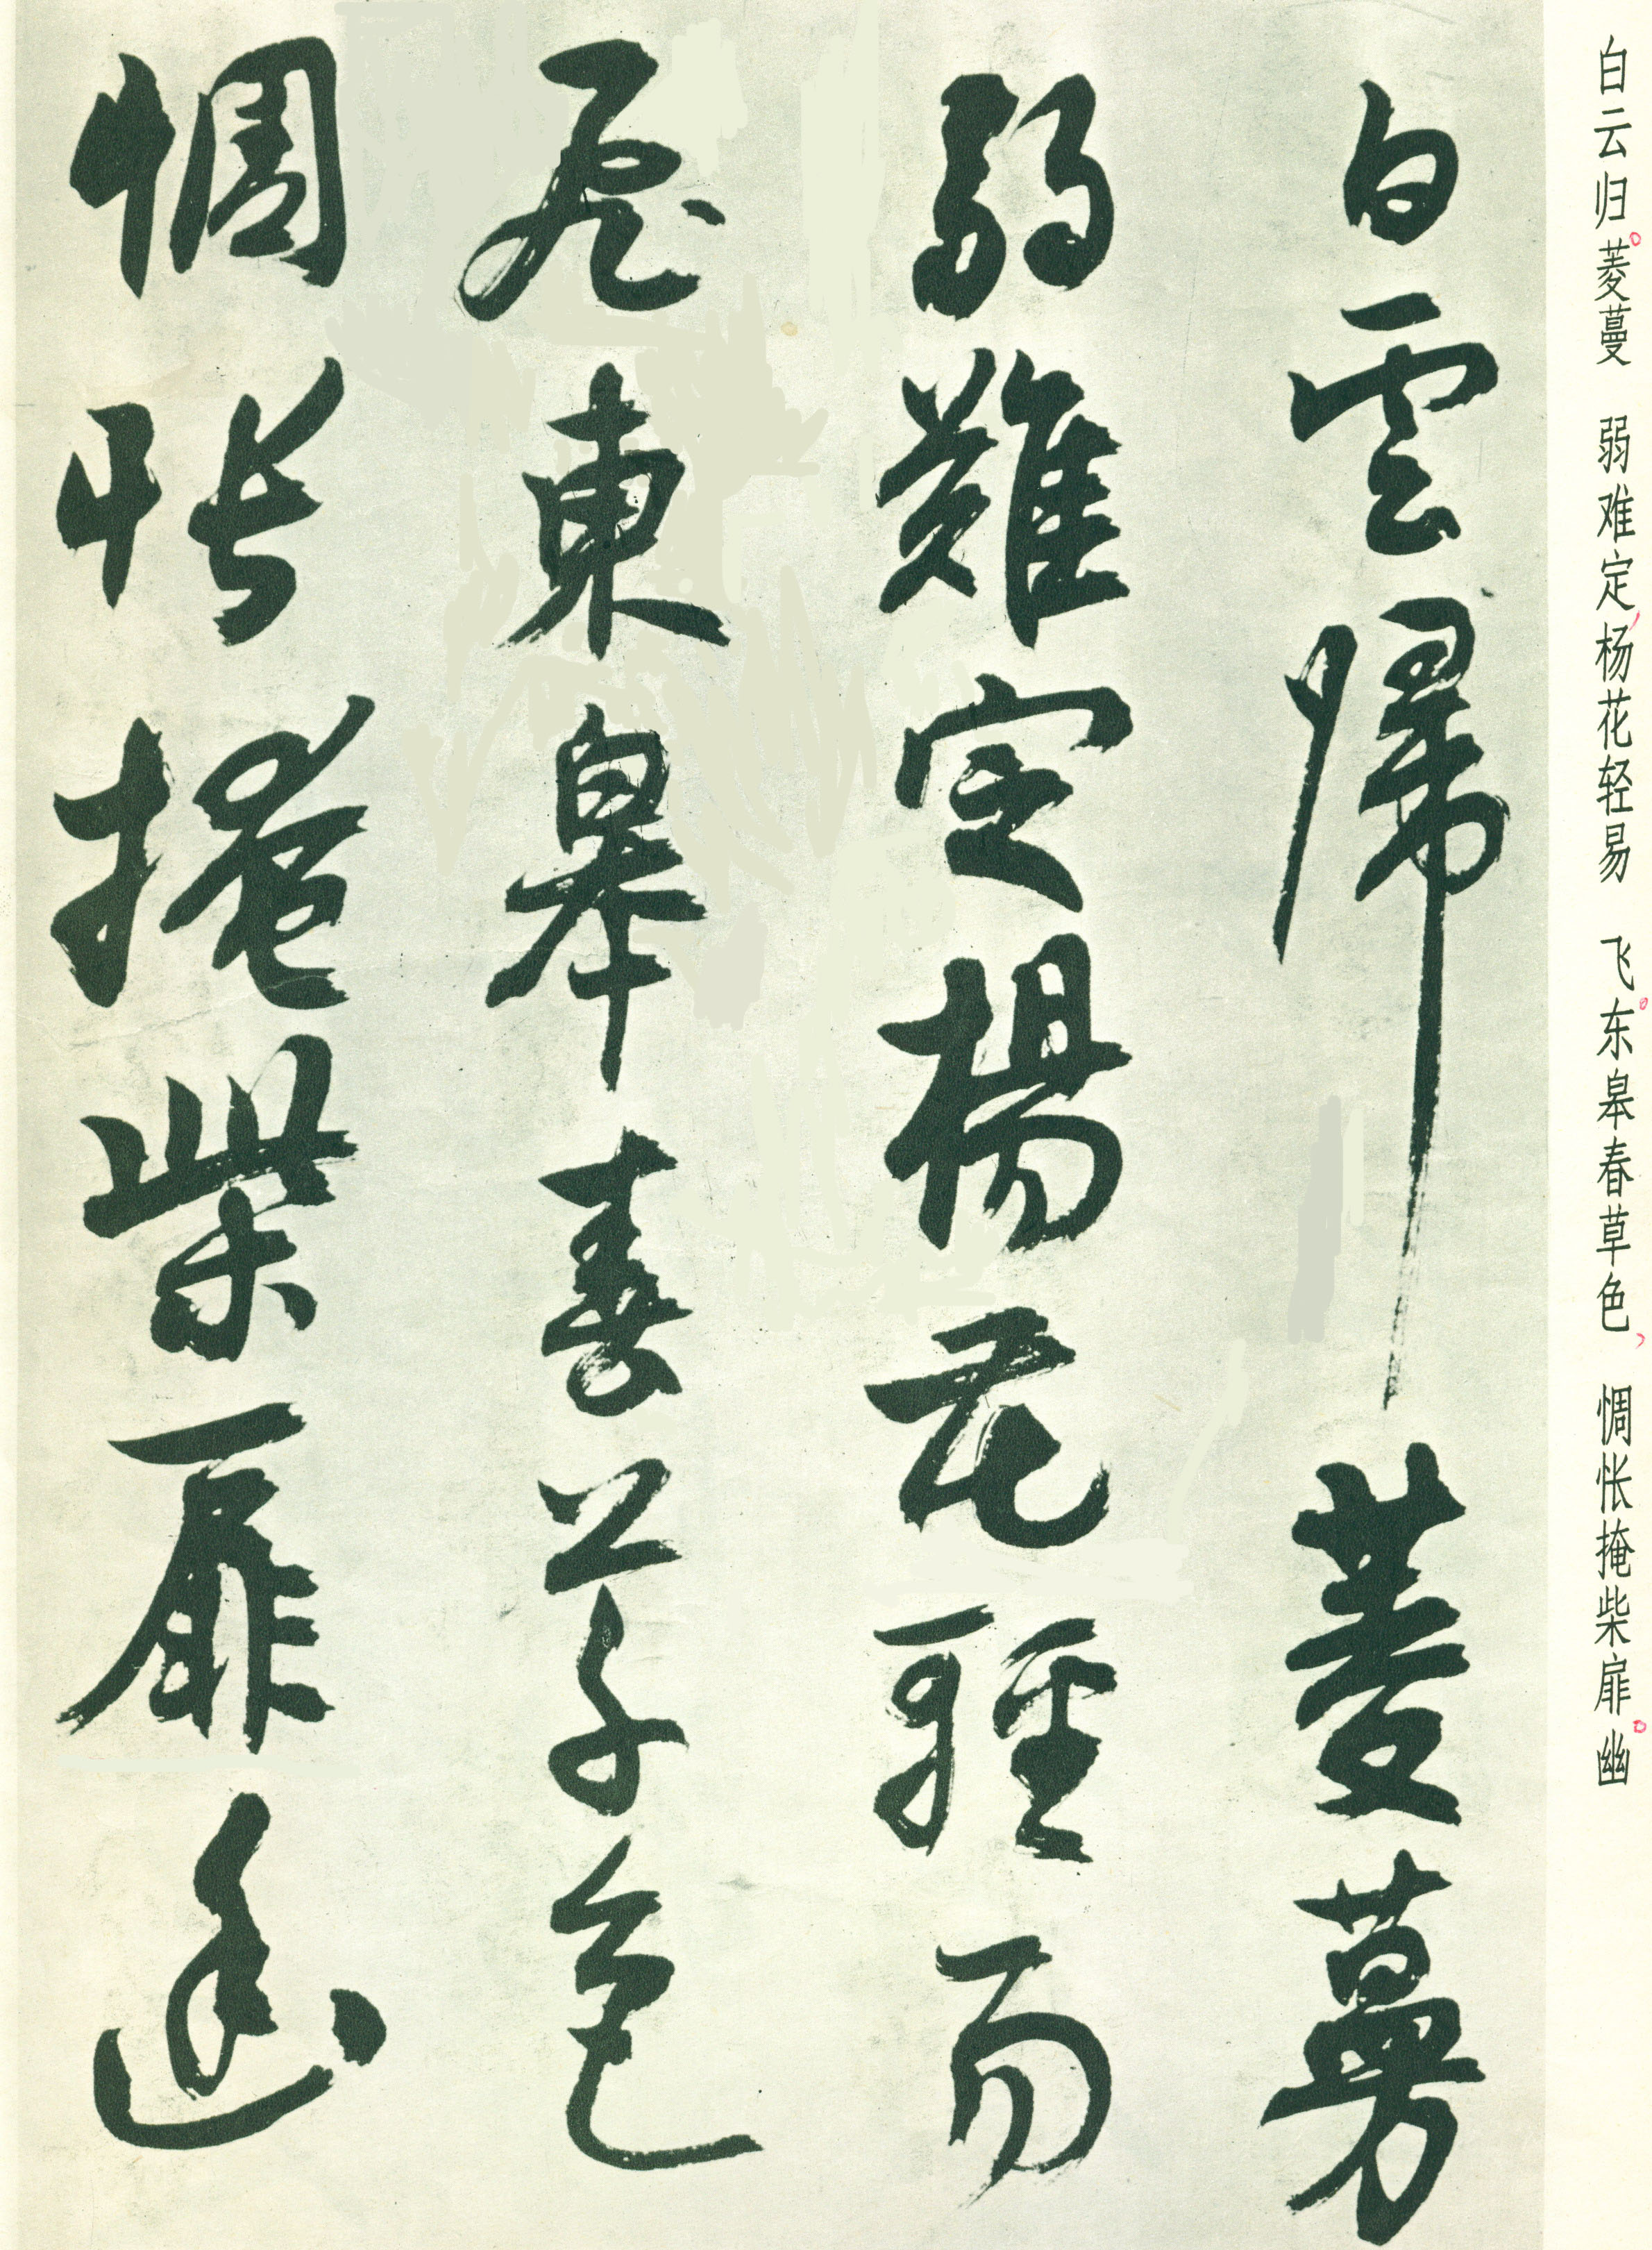 白云归。菱蔓 弱难定，杨花轻易 飞。东皋春草色，惆怅掩柴扉。幽
白雲歸菱蔓
弱難定楊花輕易
飛東皋春草色
惆悵掩柴扉幽